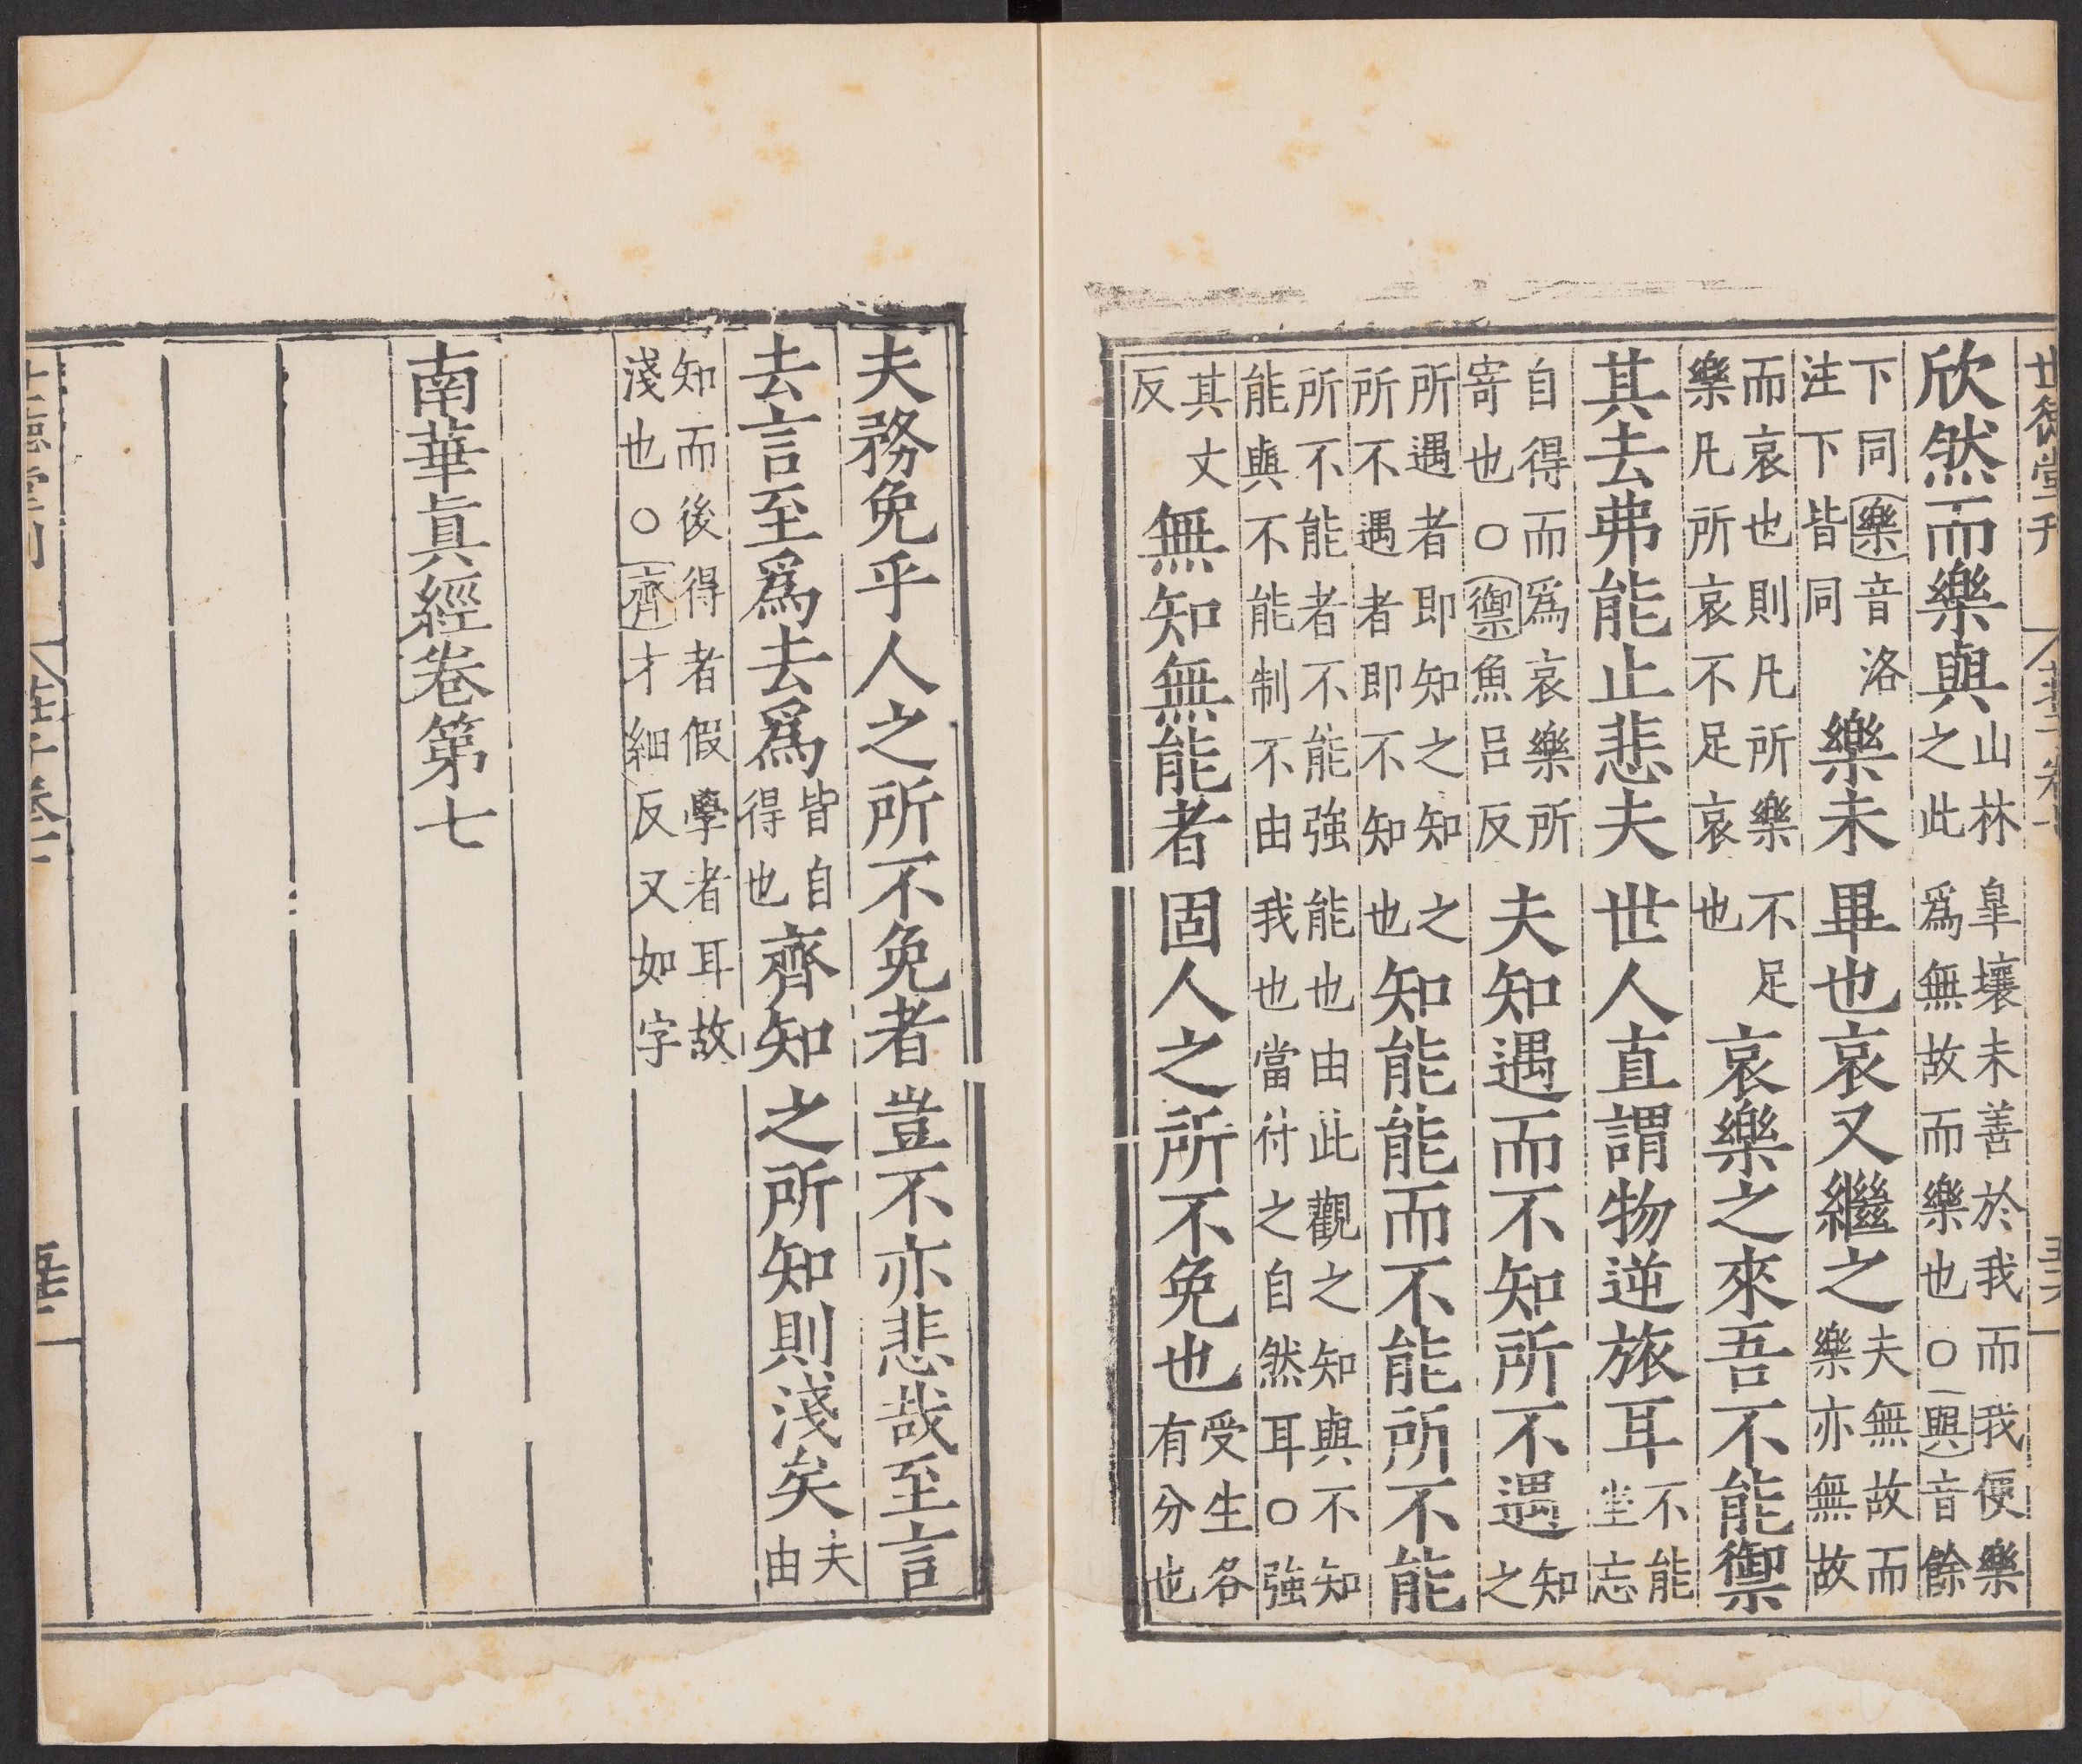 世德堂刊
欣然而樂與山林皐壤未善於我而我便樂之此爲無故而樂也○與音餘
下同樂音洛注下皆同樂未畢也哀又繼之夫無故而樂亦無故
而哀也則凡所樂不足樂凡所哀不足哀也哀樂之來吾不能禦
其去弗能止悲夫世人直謂物逆旅耳不能坐忘
自得而爲哀樂所寄也○禦魚呂反夫知遇而不知所不遇知之
所遇者即知之知之所不遇者即不知也知能能而不能所不能
所不能者不能強能也由此觀之知與不知能與不能制不由我也當付之自然耳○強
其丈反無知無能者固人之所不免也受生各有分也
夫務免乎人之所不免者豈不亦悲哉至言
去言至爲去爲皆自得也齊知之所知則淺矣夫由
知而後得者假學者耳故淺也○齊才細反又如字
南華眞經卷第七